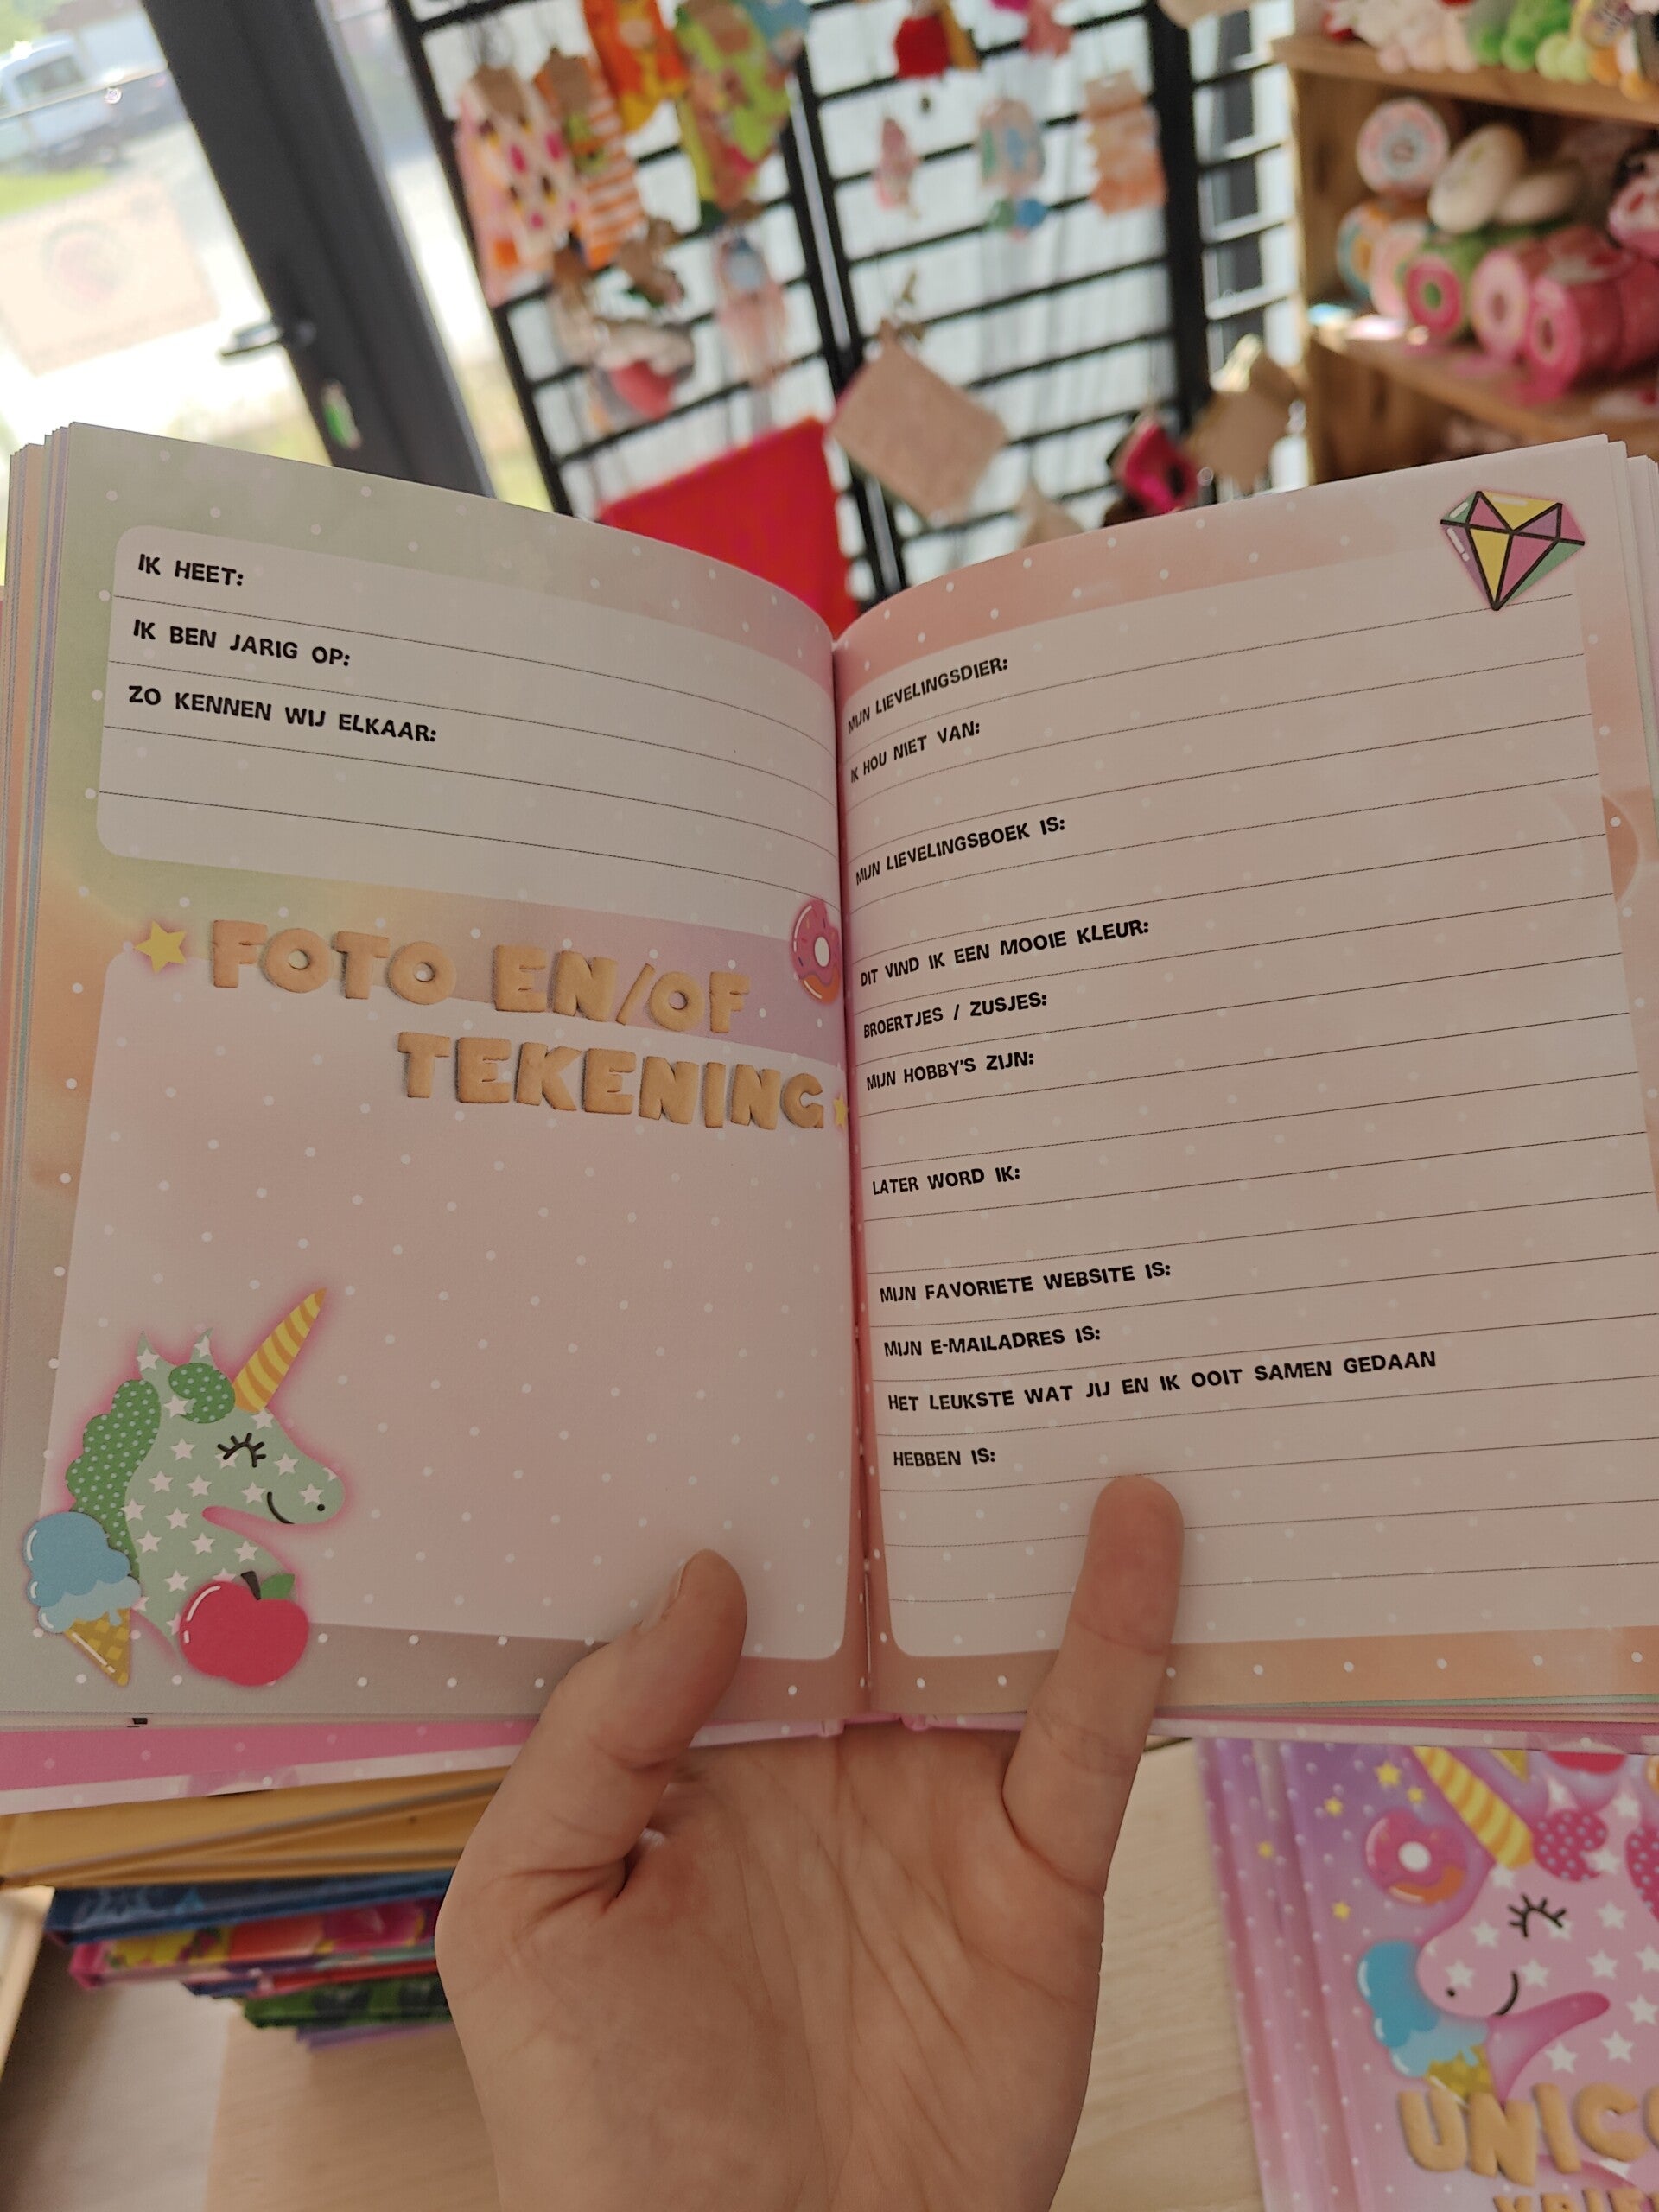 IK HEET:
IK BEN JARIG OP:
ZO KENNEN WIJ ELKAAR:
FOTO EN/OF
TEKENING
MIJN LIEVELINGSDIER:
IK HOU NIET VAN:
MIJN LIEVELINGSBOEK IS:
DIT VIND IK EEN MOOIE KLEUR:
BROERTJES / ZUSJES:
MIJN HOBBY'S ZIJN:
LATER WORD IK:
MIJN FAVORIETE WEBSITE IS:
MIJN E-MAILADRES IS:
HET LEUKSTE WAT JIJ EN IK OOIT SAMEN GEDAAN
HEBBEN IS:
UNICO